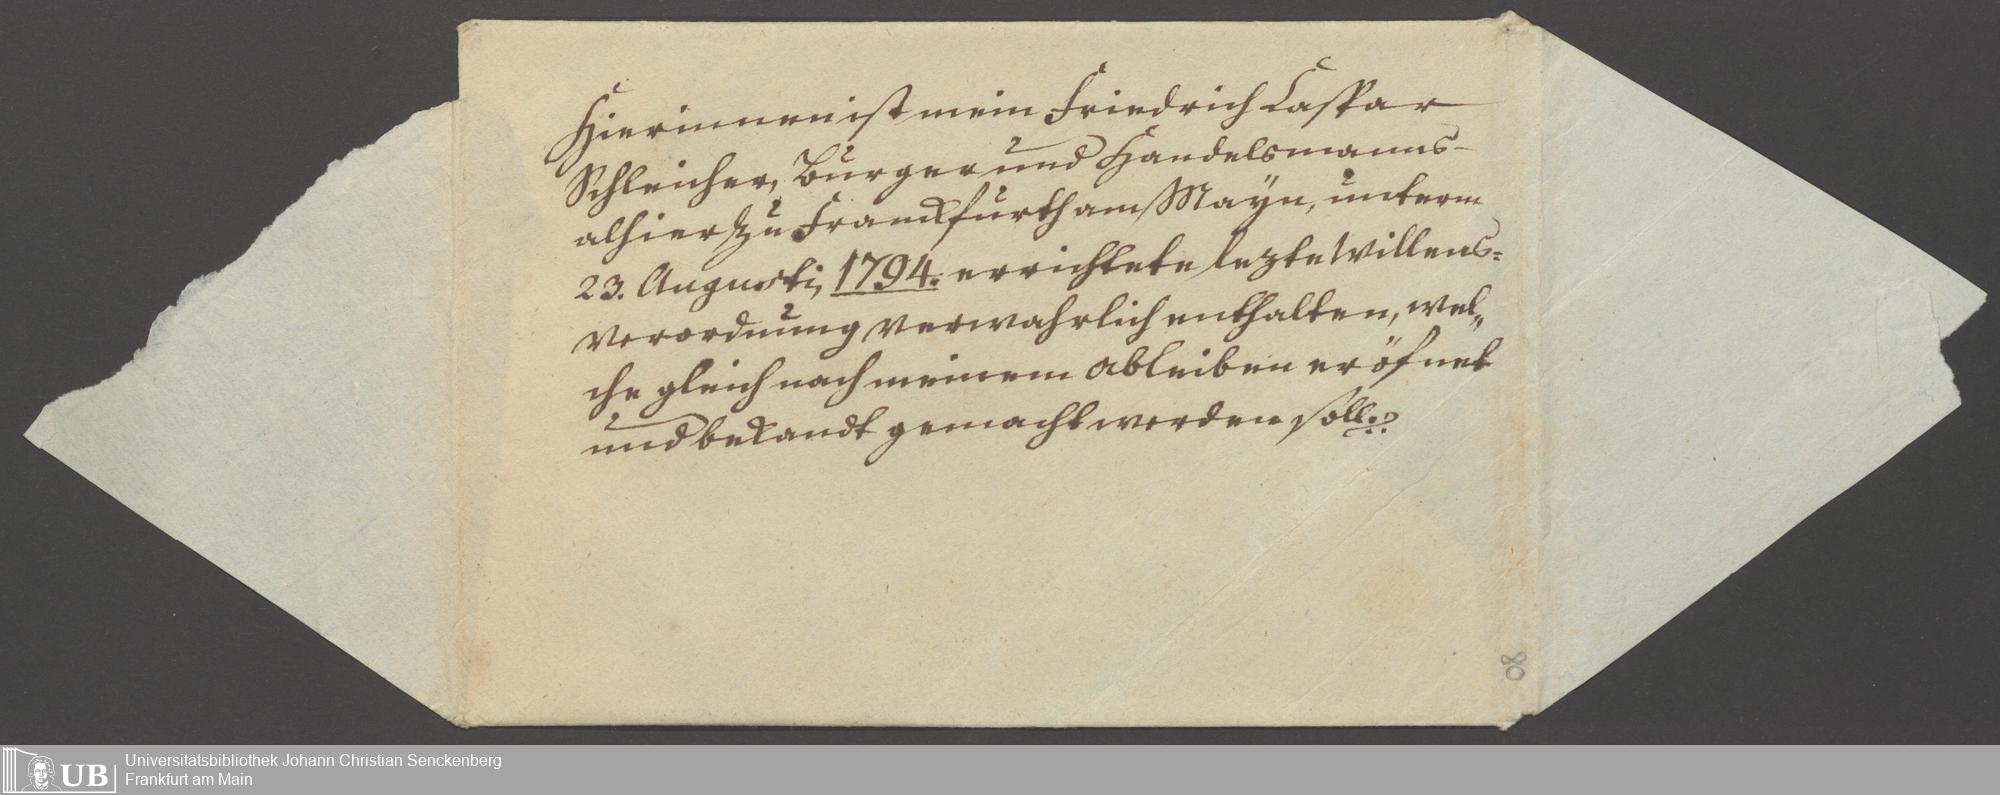 Hierinnen ist mein Friedrich Caspar
Schleicher, Burger und Handelsmanns
alhier zu Franckfurth am Mayn, unterm
23. Augusti, 1794. errichtete lezte Willens=
verordnung verwahrlich enthalten, wel„
che gleich nach meinem ableiben eröfnet
und bekandt gemacht werden soll.
80
UB
Universitätsbibliothek Johann Christian Senckenberg
Frankfurt am Main